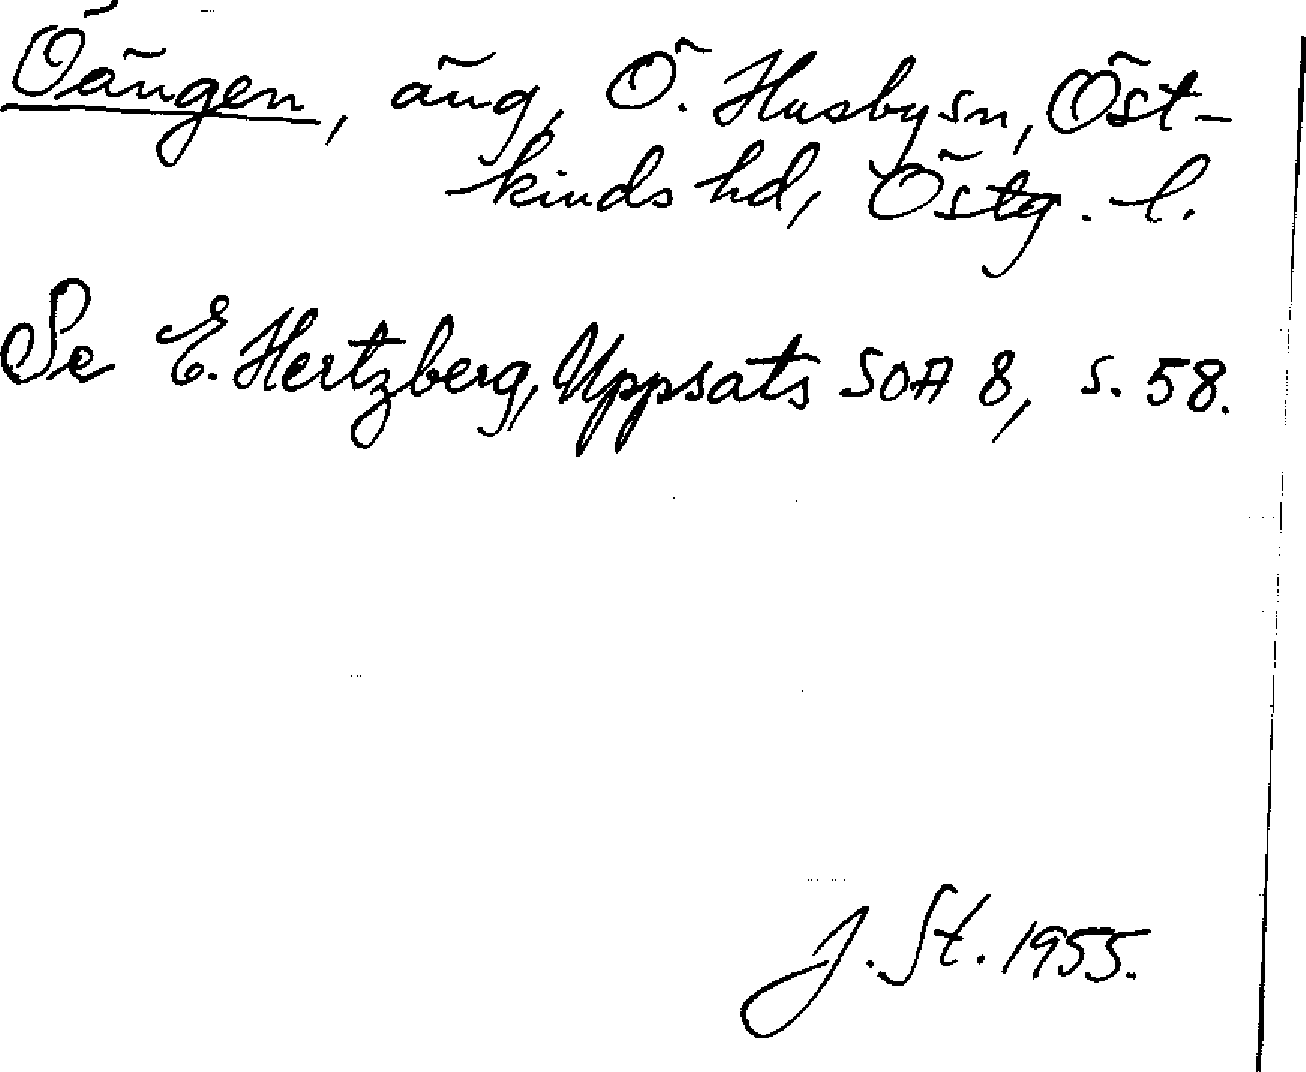 Öängen, äng, Ö. Husby sn, Öst-
kinds hd, Östg. l.
Se E. Hertzberg, Uppsats SOA 8, s. 58.
J. St. 1955.